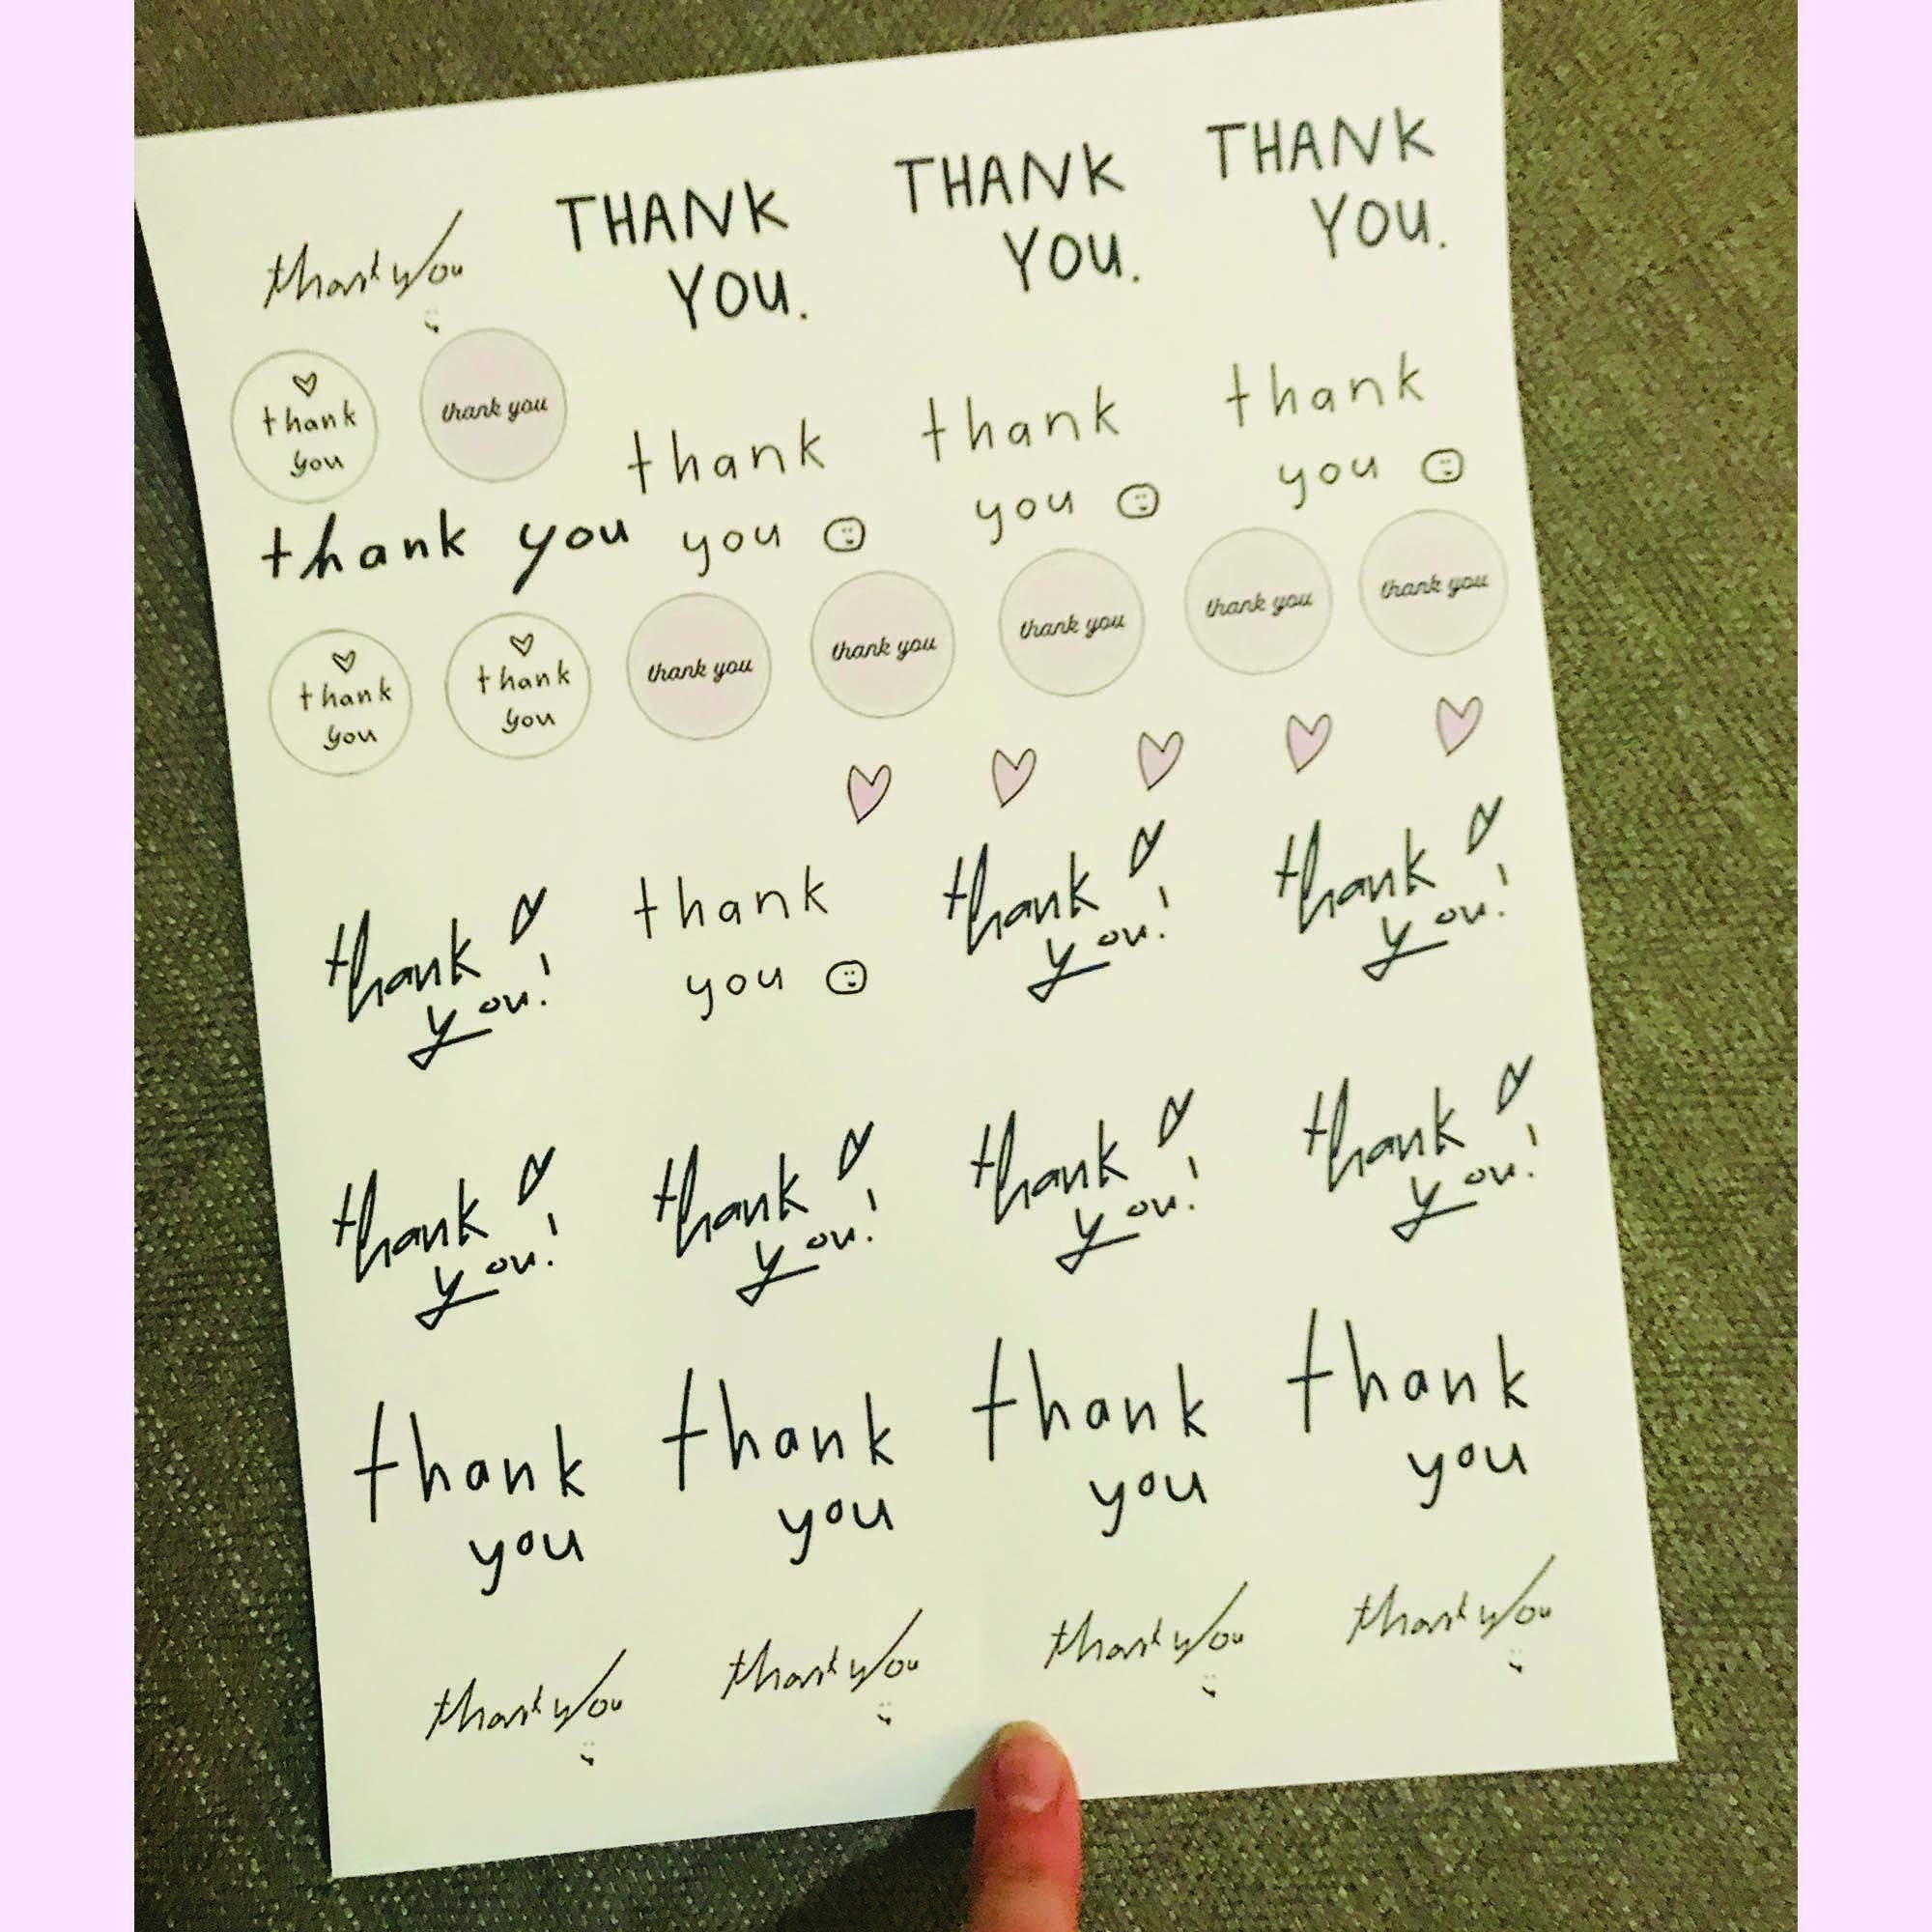 thank you
THANK
YOU.
THANK
YOU.
THANK
YOU.
thank
you
thank you
thank
you
thank
you
thank
you
thank you
thank
you
thank
you
thank you
thank you
thank you
thank you
thank you
thank
you!
thank
you
thank
you!
thank
you!
thank
you!
thank
you!
thank
you!
thank
you!
thank
you
thank
you
thank
you
thank
you
thank you
thank you
thank you
thank you